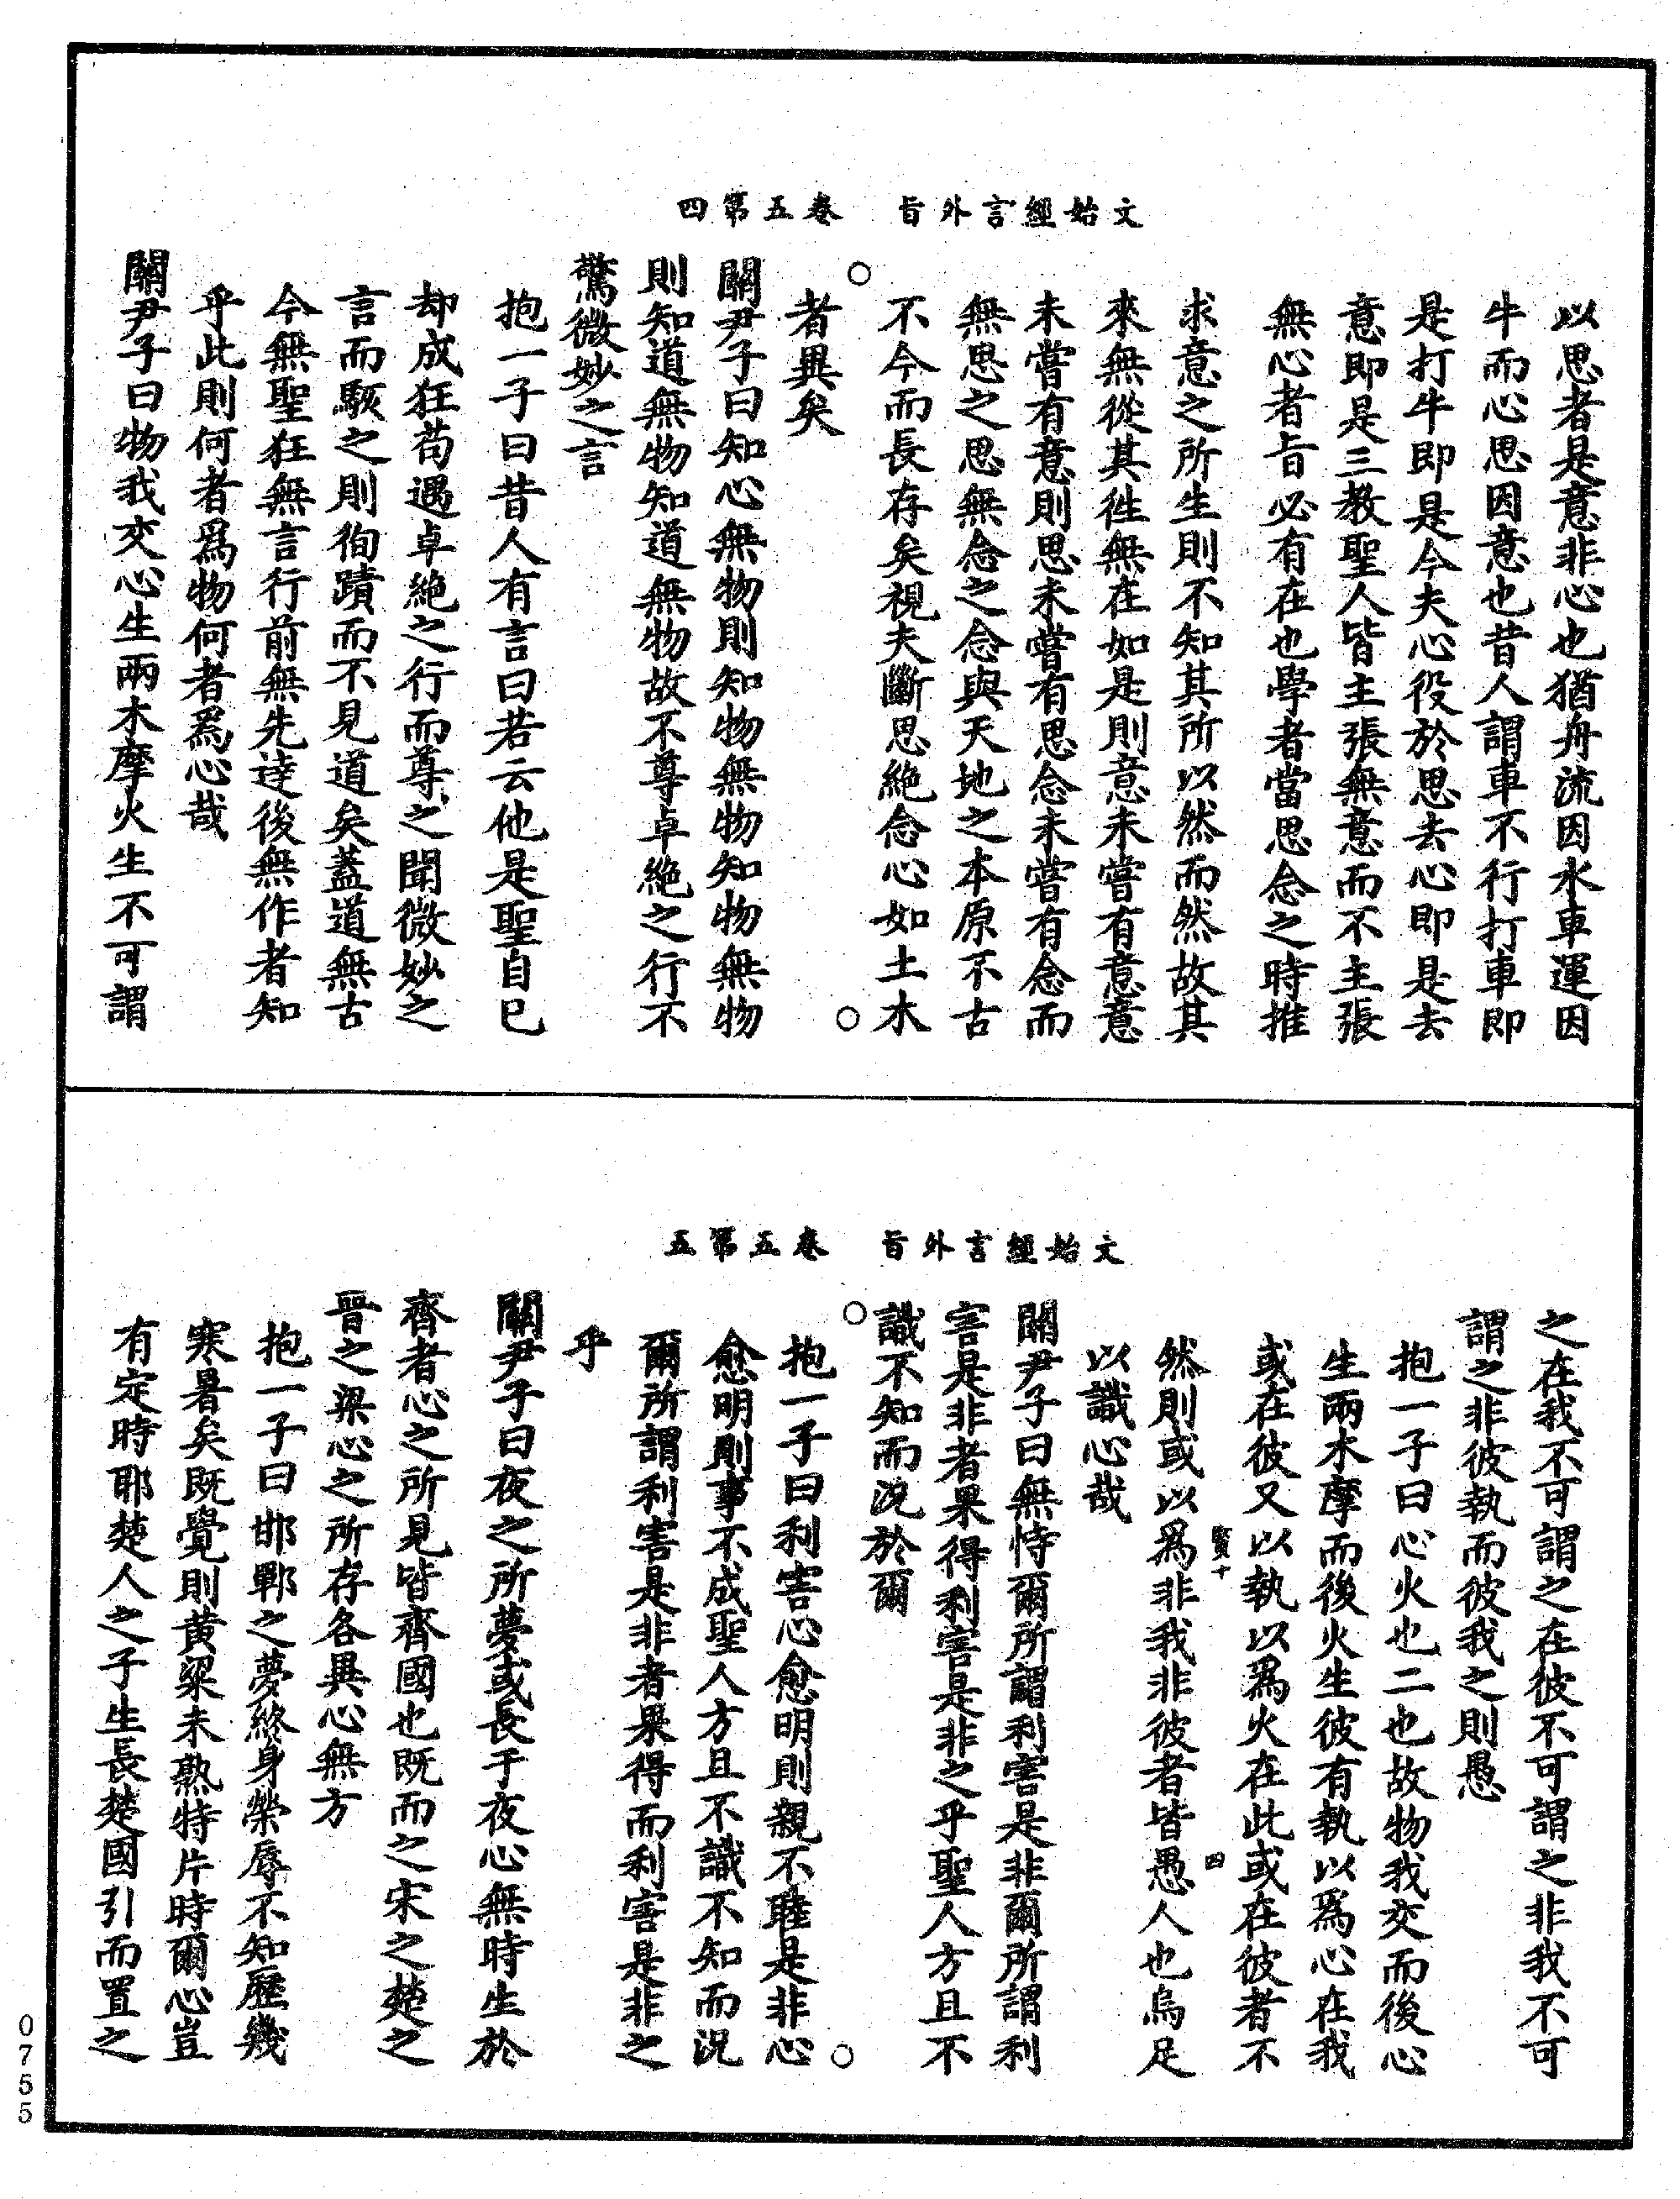 文始經言外旨　卷五第四
以思者是意非心也猶舟流因水車運因
牛而心思因意也昔人謂車不行打車即
是打牛即是今夫心役於思去心即是去
意即是三教聖人皆主張無意而不主張
無心者旨必有在也學者當思念之時推
求意之所生則不知其所以然而然故其
來無從其徃無在如是則意未嘗有意意
未嘗有意則思未嘗有思念未嘗有念而
無思之思無念之念與天地之本原不古
不今而長存矣視夫斷思絕念心如土木
者異矣
關尹子曰知心無物則知物無物知物無物
則知道無物知道無物故不尊卓絕之行不
驚微妙之言
抱一子曰昔人有言曰若云他是聖自已
却成狂苟遇卓絕之行而尊之聞微妙之
言而駭之則徇蹟而不見道矣蓋道無古
今無聖狂無言行前無先逹後無作者知
乎此則何者爲物何者爲心哉
關尹子曰物我交心生兩木摩火生不可謂
文始經言外旨　卷五第五
之在我不可謂之在彼不可謂之非我不可
謂之非彼執而彼我之則愚
抱一子曰心火也二也故物我交而後心
生兩木摩而後火生彼有執以爲心在我
或在彼又以執以爲火在此或在彼者不
賢十　四
然則或以爲非我非彼者皆愚人也烏足
以識心哉
關尹子曰無恃爾所謂利害是非爾所謂利
害是非者果得利害是非之乎聖人方且不
識不知而況於爾
抱一子曰利害心愈明則親不睦是非心
愈明則事不成聖人方且不識不知而況
爾所謂利害是非者果得而利害是非之
乎
關尹子曰夜之所夢或長于夜心無時生於
齊者心之所見皆齊國也既而之宋之楚之
晉之梁心之所存各異心無方
抱一子曰邯鄲之夢終身榮辱不知歷幾
寒暑矣既覺則黃粱未熟特片時爾心豈
有定時耶楚人之子生長楚國引而置之
0755